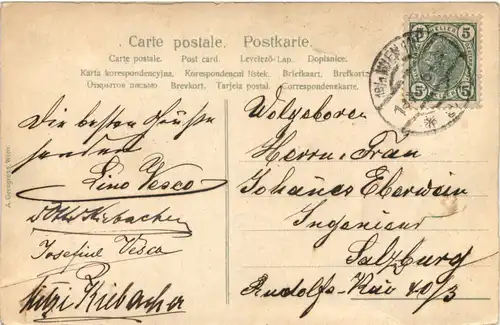 Carte postale. Postkarte.
Carte postale. Post card. Levelező-Lap. Dopisnice.
Karta korespondencyjna. Korespondencni listek. Briefkaart. Brefkort.
Открытое письмо Brevkort. Tarjeta postal. Correspondenzkarte.
5 5
5 5
WIEN
A. Georgi
Wien
Die besten Grüße
senden
Lino Vesco
Kiebacher
Josefine Vesco
Mitzi Kiebacher
Wolgeboren
Herrn, Frau
Johanes Eberwein
Ingenieur
Salzburg
Rudolfs-Kai 40/3